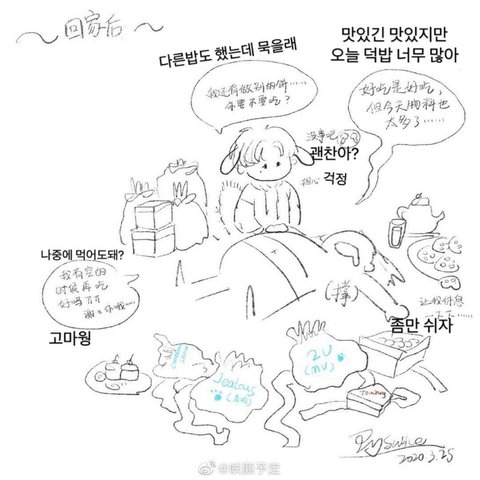 ~回家后~
다른밥도 했는데 묵을래
맛있긴 맛있지만
오늘 덕밥 너무 많아
我还有做别的饼
你要不要吃?
好吃是好吃,
但今天物料也
太多了……
没事吧
괜찬아?
担心
걱정
나중에 먹어도돼?
我有空的
时候再吃
好吗
고마웡
(撑)
让我休息
一下下……
좀만 쉬자
Jealous
(live)
2U
(MV)
2020.3.25